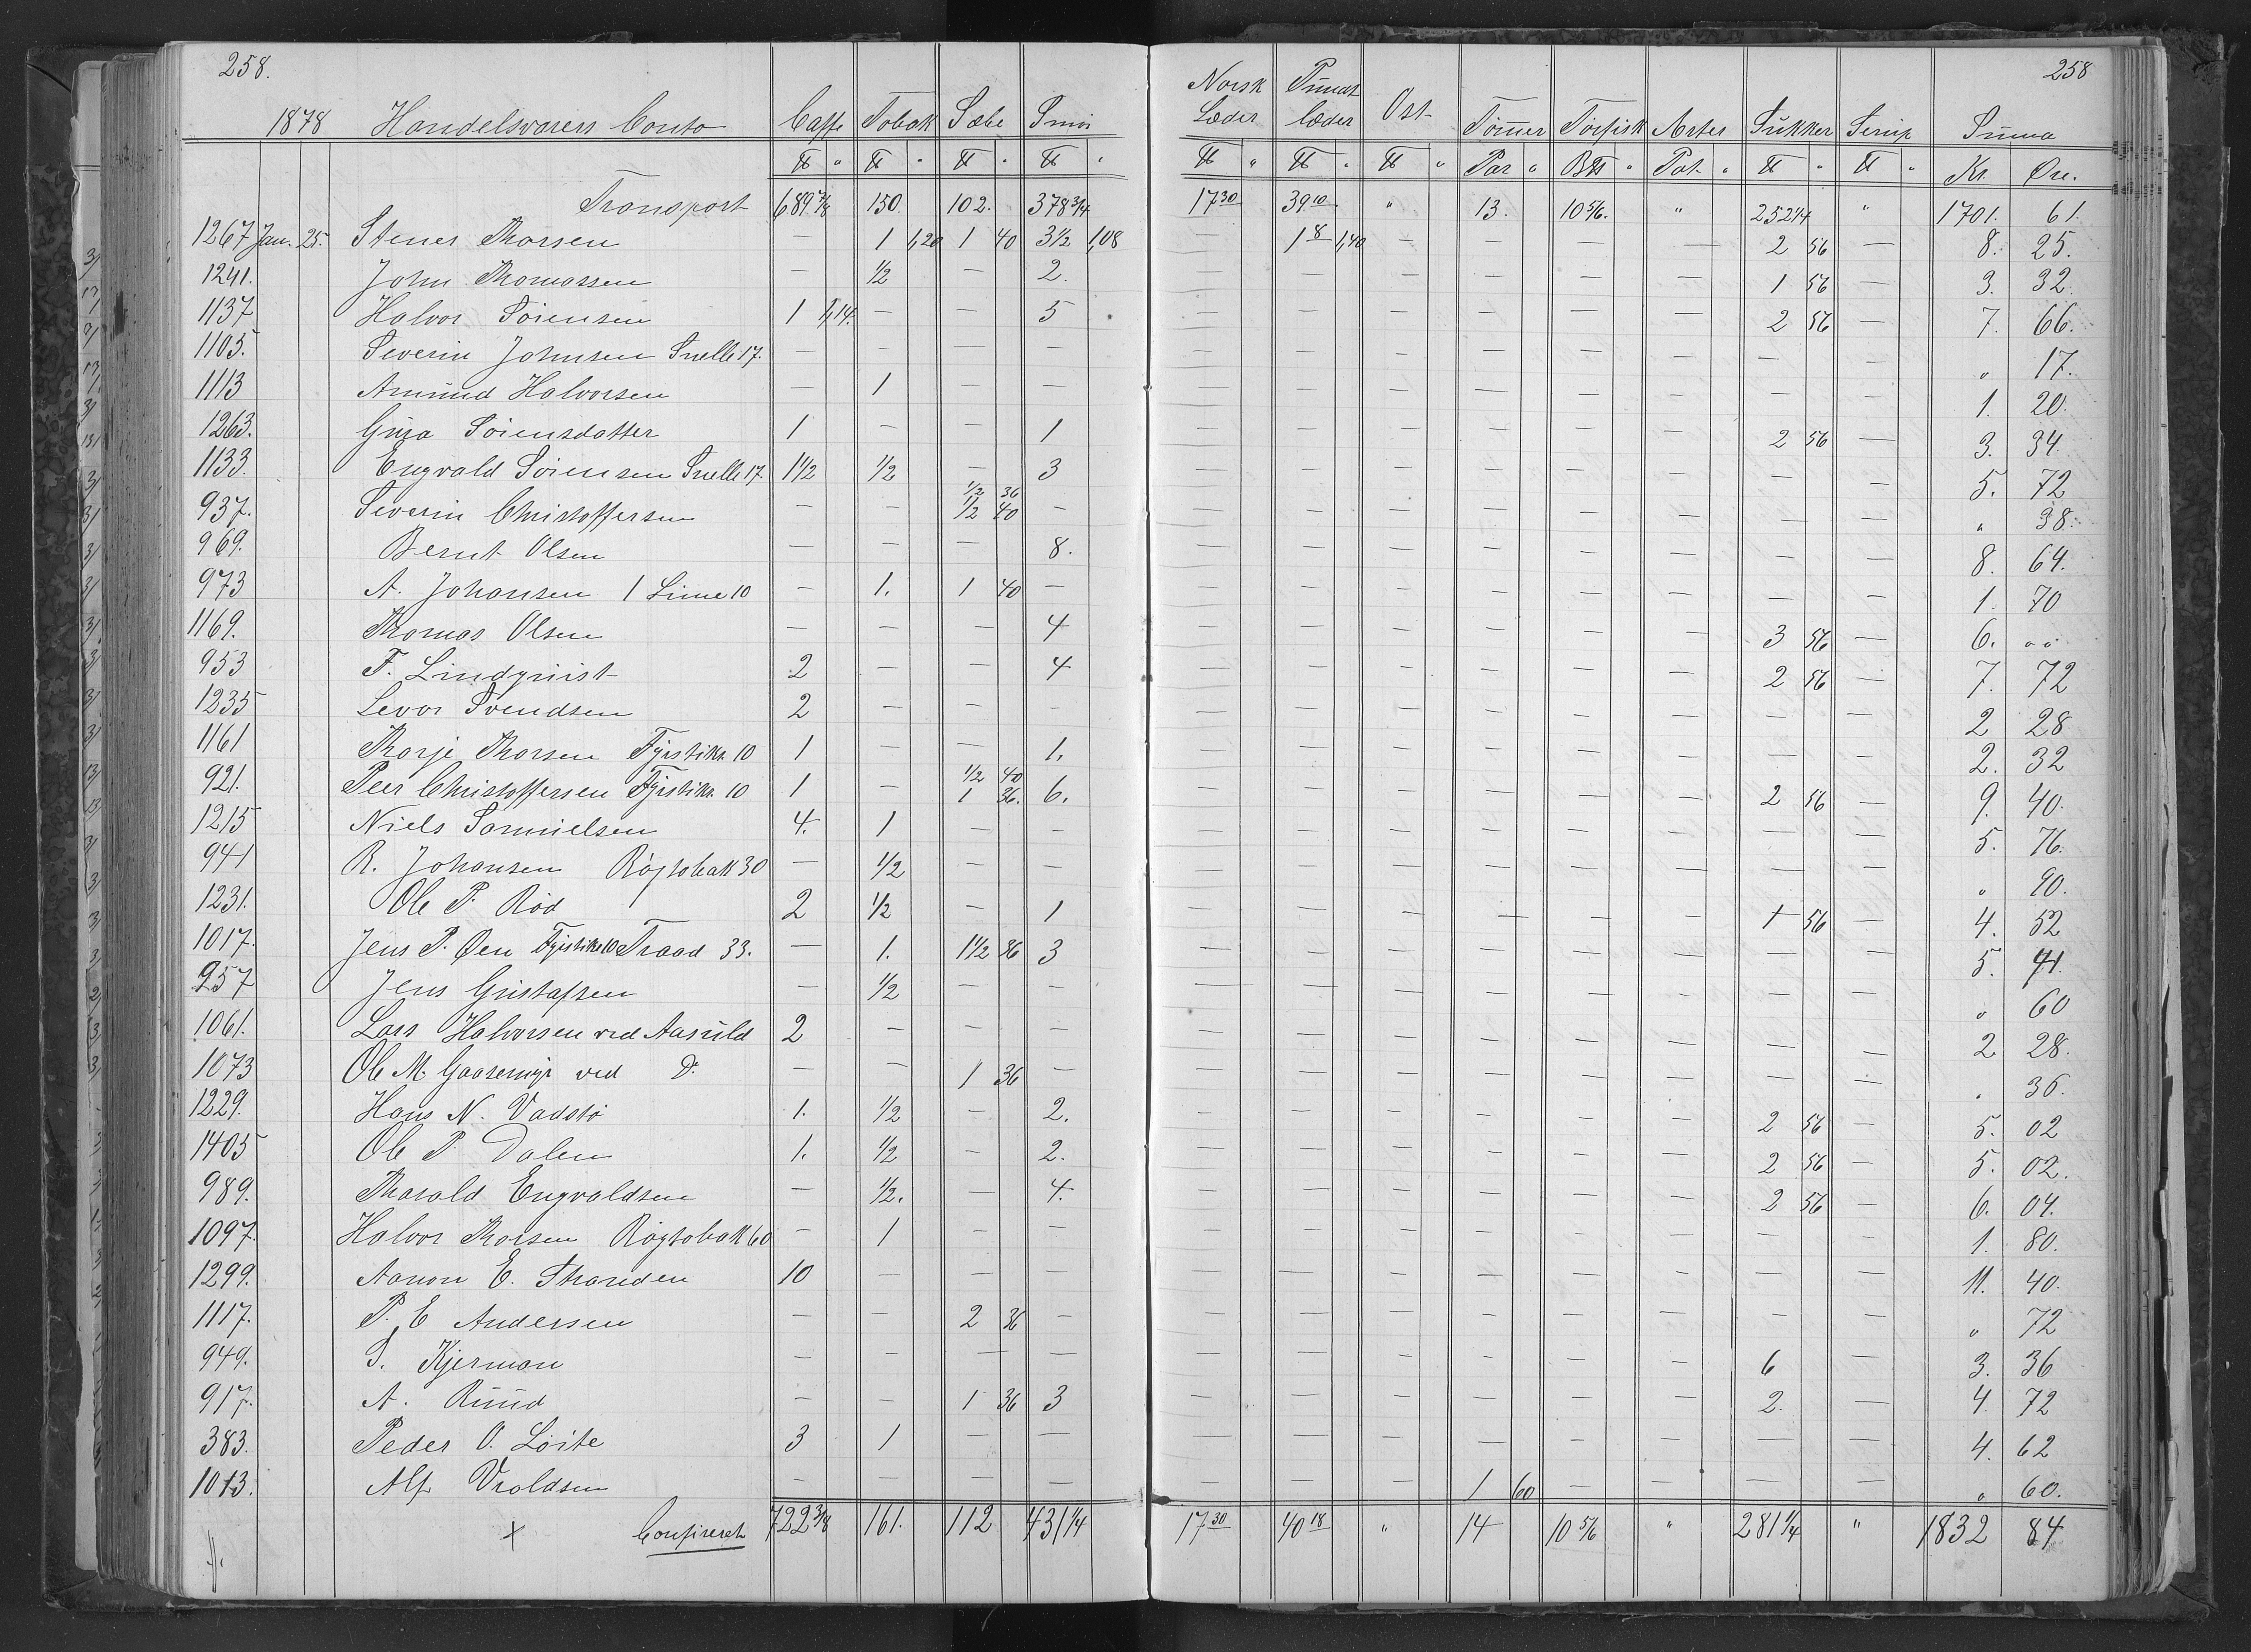 258. 258
1878 Handelsvarers Conto Caffe Tobak Sæbe Smør Norsk Læder Pundt læder Ost Tønner Tørfisk Arter Sukker Sirup Summa
℔ " ℔ " ℔ " ℔ " ℔ " ℔ " ℔ " Par " B℔ " Pot. " ℔ " ℔ " Kr. Øre.
Transport 689 7/8 150. 102. 378 3/4 17 30 39 10 " 13. 10 5/6. " 252 1/4 " 1701. 61.
1267 Jan. 25. Stener Thorsen — 1 1,20 1 40 3 1/2 1,08 — 1 8 1,40 — — — — 2 56 — 8. 25.
1241. John Thomassen — 1/2 — 2. — — — — — — 1 56 — 3. 32.
1137 Halvor Sörensen 1 1,14. — — 5 — — — — — — 2 56 — 7. 66.
1105. Severin Johnsen Snelle 17. — — — — — — — — — — — — " 17.
1113 Amund Halvorsen — 1 — — — — — — — — — — 1. 20.
1263. Gina Sörensdatter 1 — — 1 — — — — — — 2 56 — 3. 34.
1133. Engvald Sörensen Snelle 17. 1 1/2 1/2 — 3 — — — — — — — — 5. 72
937. Severin Christoffersen — — 1/2 36 1/2 40 — — — — — — — — — " 38.
969. Bernt Olsen — — — 8. — — — — — — — — 8. 64.
973 A. Johansen 1 Lime 10 — 1. 1 40 — — — — — — — — — 1. 70
1169. Thomas Olsen — — — 4 — — — — — — 3 56 — 6. oo
953 F. Lindquist 2 — — 4 — — — — — — 2 56 — 7. 72
1235 Levor Svendsen 2 — — — — — — — — — — — 2 28
1161 Thorje Thorsen Fyrstikr. 10 1 — — 1. — — — — — — — — 2. 32
921. Peer Christoffersen Fyrstikr. 10 1 — 1/2 40 1 36. 6. — — — — — — 2 56 — 9. 40.
1215 Niels Samuelsen 4. 1 — — — — — — — — — — 5. 76.
941 R. Johansen Røgtobak 30 — 1/2 — — — — — — — — — — " 90.
1231. Ole P. Röd 2 1/2 — 1 — — — — — — 1 56 — 4. 52
1017. Jens P. Øen Fyrstikr. 10 Traad 33. — 1. 1 1/2 36 3 — — — — — — — — 5. 41.
957 Jens Gustafsen — 1/2 — — — — — — — — — — " 60
1061. Lars Halvorsen ved Aasuld 2 — — — — — — — — — — — 2 28.
1073 Ole M. Gaasemyr ved Do. — — 1 36 — — — — — — — — — " 36.
1229. Hans N. Vadstö 1. 1/2 — 2. — — — — — — 2 56 — 5. 02
1405 Ole P. Dalen 1. 1/2 — 2. — — — — — — 2 56 — 5. 02.
989. Tharald Engvaldsen — 1/2. — 4. — — — — — — 2 56 — 6. 04.
1097. Halvor Thorsen Røgtobak 60 — 1 — — — — — — — — — — 1. 80.
1299. Aanon E. Stranden 10 — — — — — — — — — — — 11. 40.
1117. P. E Andersen — — 2 36 — — — — — — — — — " 72
949. S. Kjerman — — — — — — — — — — 6 — 3. 36
917. A. Ruud — — 1 36 3 — — — — — — 2. — 4 72
383. Peder O. Löite 3 1 — — — — — — — — — — 4. 62
1013. Alf Vroldsen — — — — — — — 1 60 — — — — " 60.
+ Confereret 722 3/8 161. 112 431 1/4 17 30 40 18 " 14 10 5/6 " 281 1/4 " 1832 84